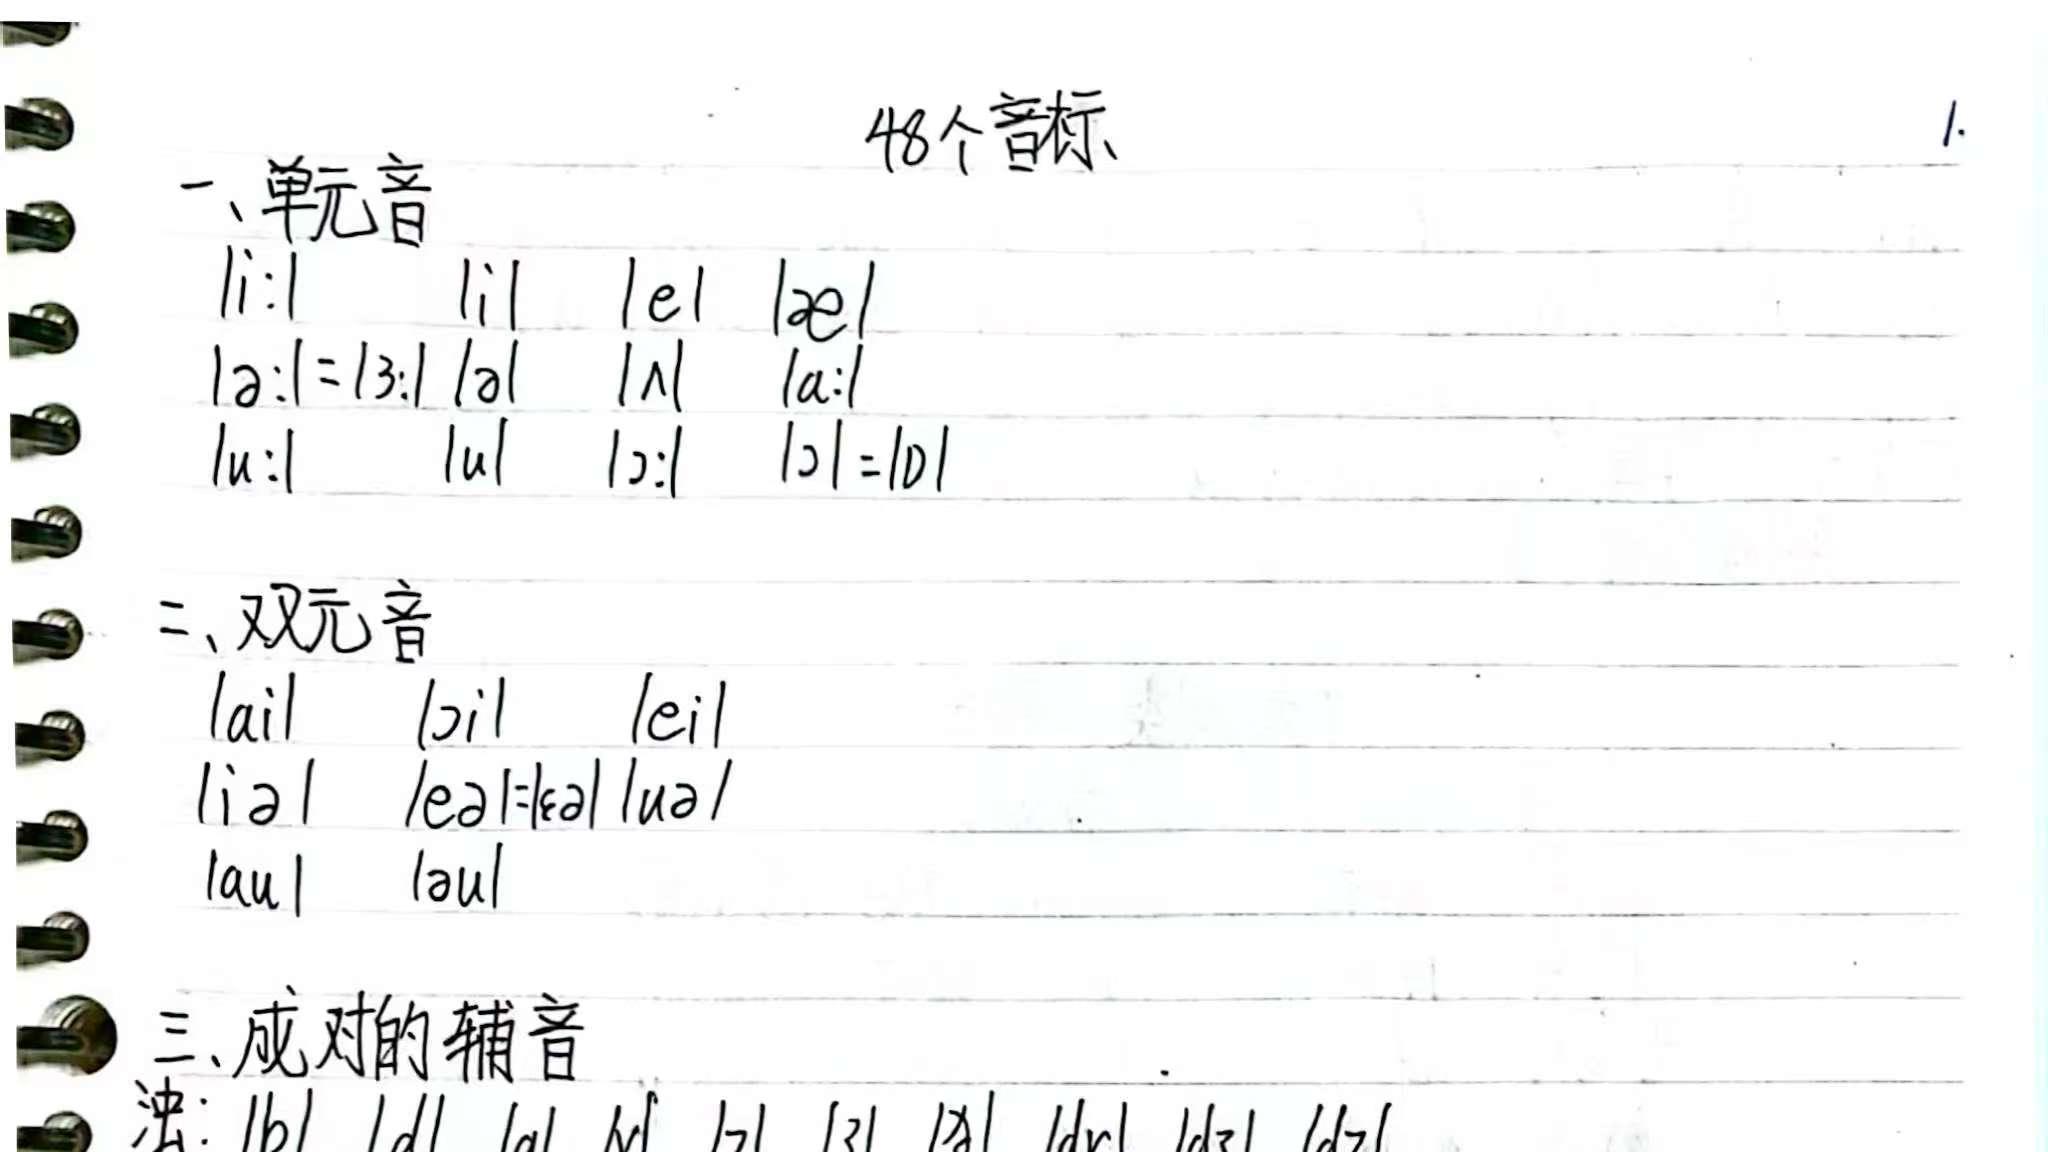 48个音标
1.
一、单元音
/i:/ /i/ /e/ /æ/
/ə:/=/ɜ:/ /ə/ /ʌ/ /a:/
/u:/ /u/ /ɔ:/ /ɔ/=/ɒ/
二、双元音
/ai/ /ɔi/ /ei/
/iə/ /eə/=/ɛə/ /uə/
/au/ /əu/
三、成对的辅音
浊: /b/ /d/ /g/ /v/ /z/ /ʒ/ /ð/ /dr/ /dʒ/ /dz/